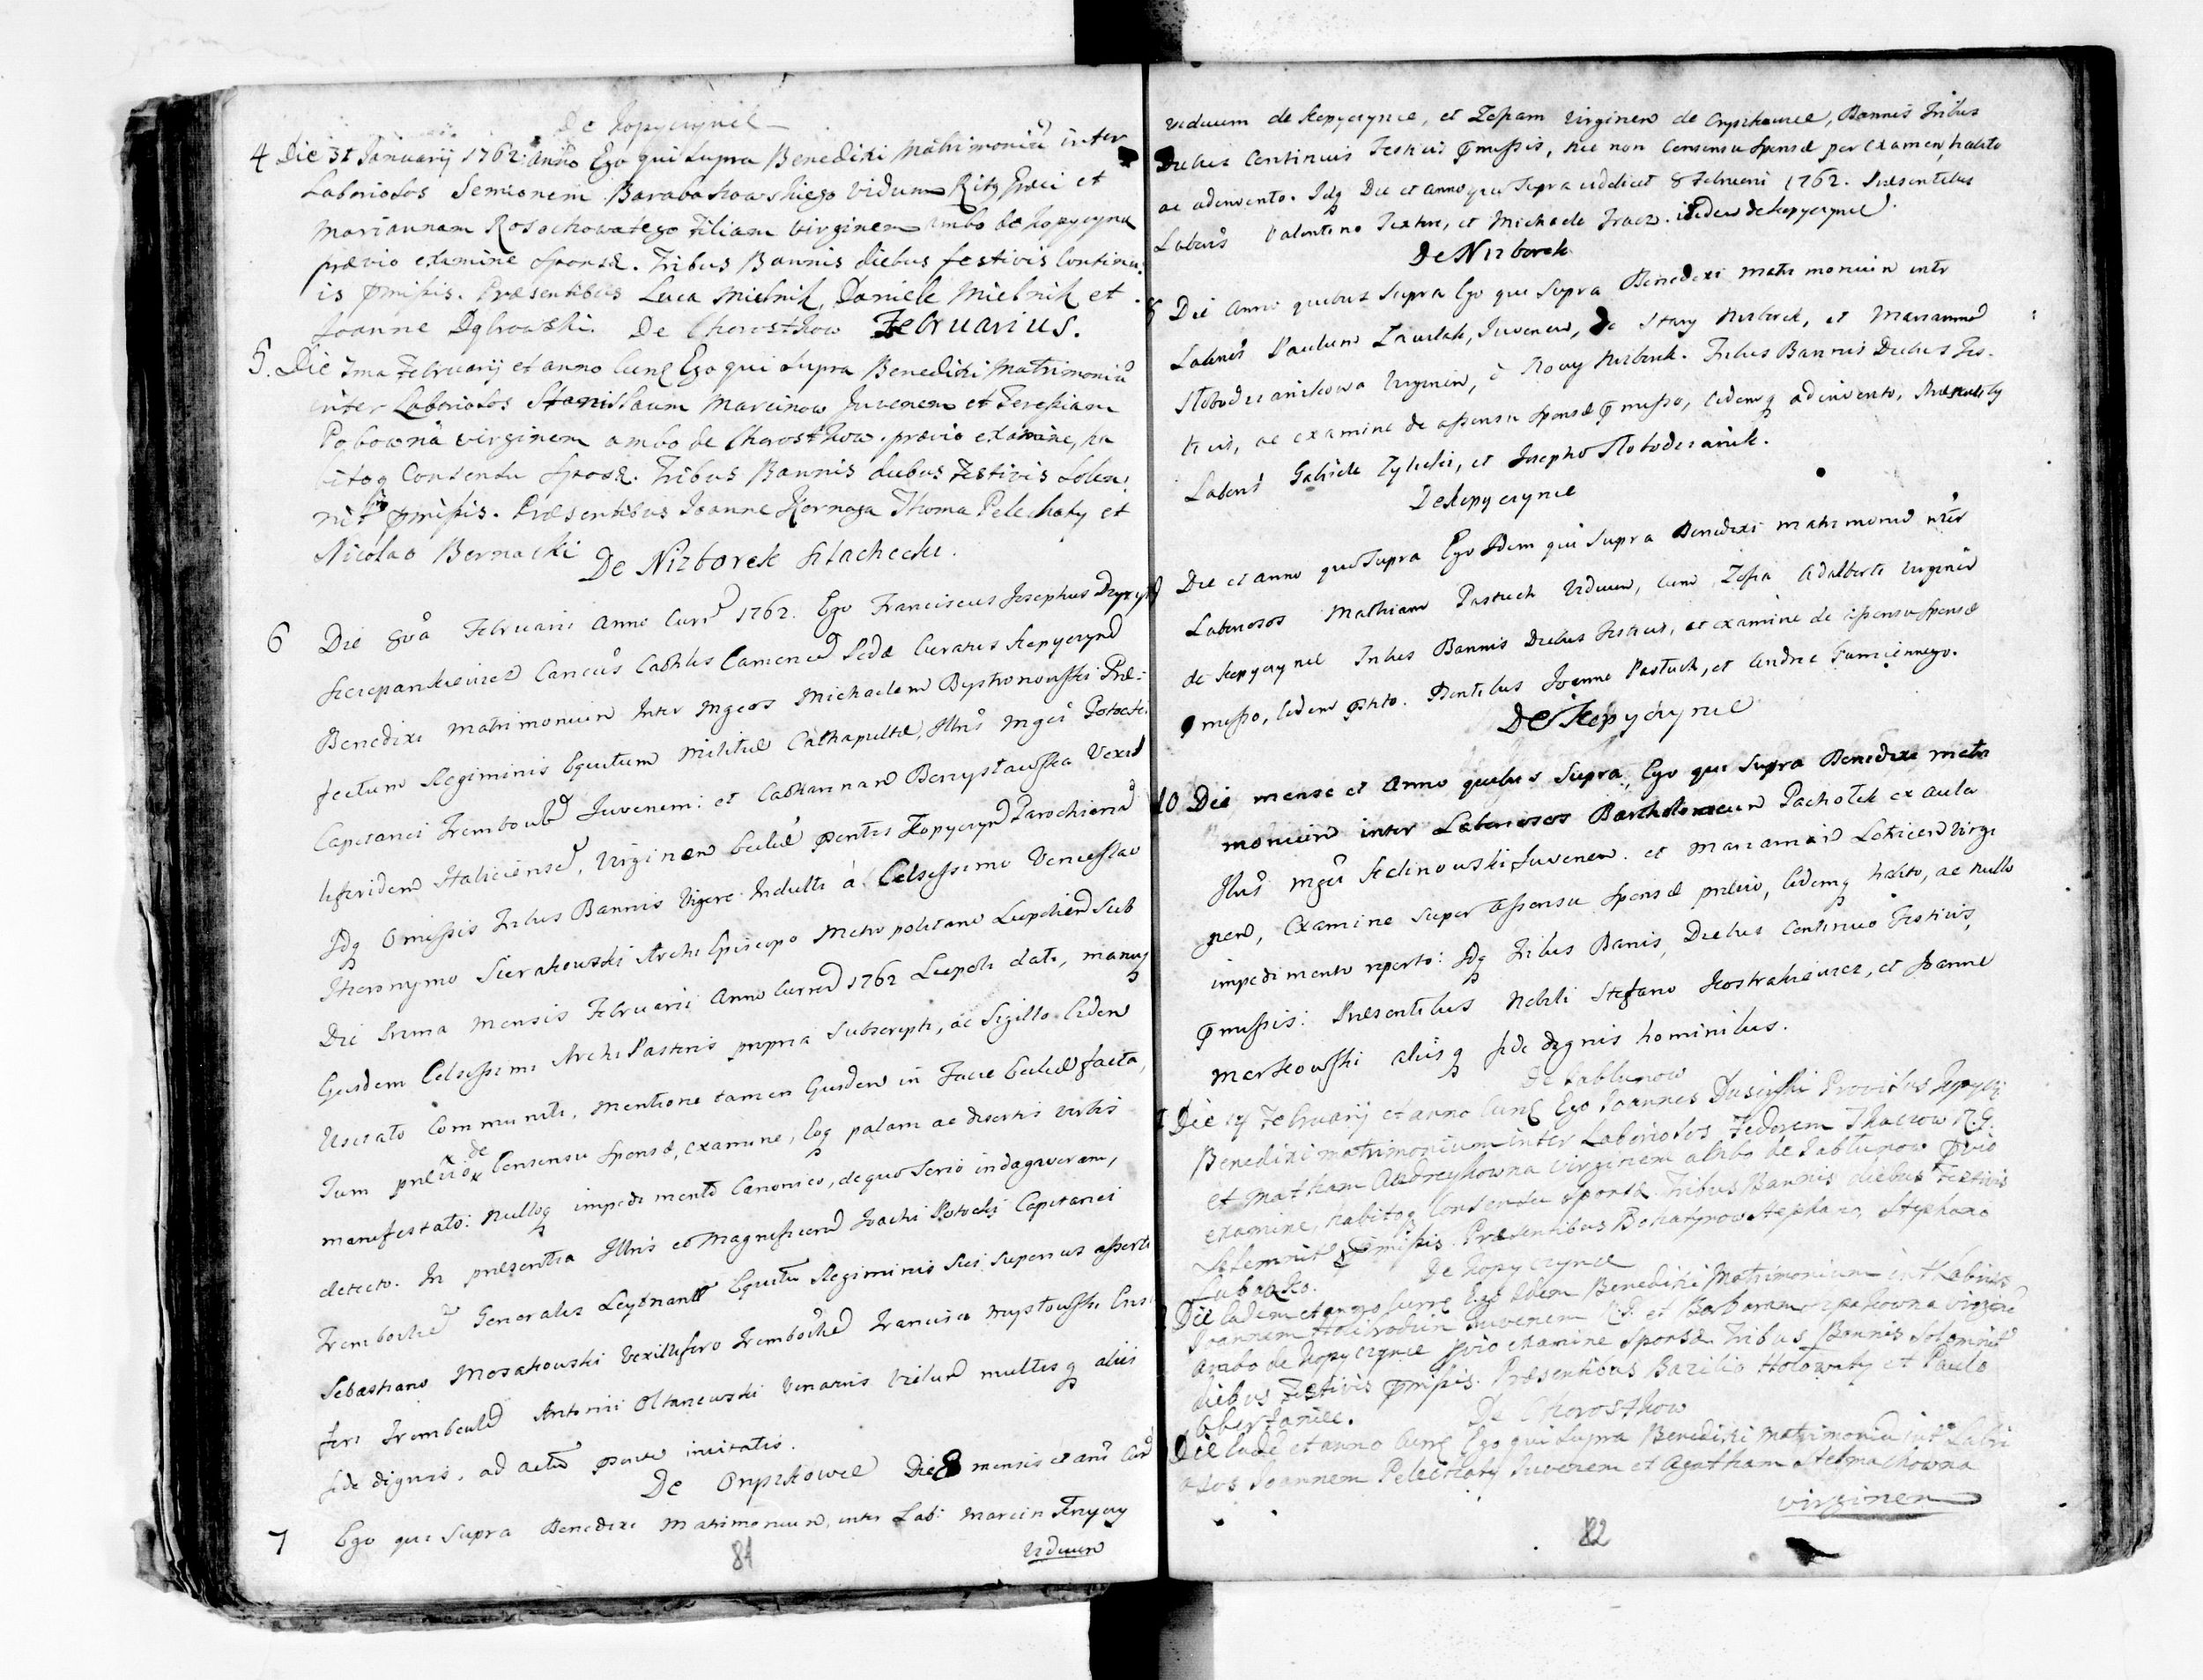 De Kopyczynce
4 Die 31 Januarij 1762 anno Ego qui supra Benedixi Matrimoniũ inter
Laboriosos Semionem Barabahowskiego Viduum Ritg Græci et
Mariannam Rosochowatego Filiam Virginem ambo de Kopyczynce
prævio examine Sponsæ. Tribus Bannis diebus festivis Continu
is pmissis. Præsentibus Luca Mielnik, Daniele Mielnik et
Joanne Dąbrowski. De Chorosthow Februarius.
5. Die 1ma Februarij et anno Curͤ Ego qui supra Benedixi Matrimoniũ
inter Laboriosos Stanislaum Marcinow Juvenem et Teressiam
virginem ambo de Chorosthow. prævio examine, ha
bitoq Consensu Sponsæ. Tribus Bannis diebus Festivis Solen
nit pmissis. Præsentibus Joanne Kornaga Thoma Pelechaty et
Nicolao Bernacki De Nizborek Szlachecki.
6 Die 8va Februarii Anno Curr 1762. Ego Franciscus Josephus
Szczepankiewicz Cancus Cathlis Camenec Sedæ Curatus Kopyczync
Benedixi Matrimonium Inter Mgcos Michaelem Bystronowski Præ:
fectum Regiminis Equitum Militiæ Illris Mgci Potocki
Capitanei Trembowl Juvenem: et Catharinam Berzystawska Vexil
liferidem Haliciense, Virginem Eccliæ Kopyczyn Parochiens
Idq Omissis Tribus Bannis Vigore Indulti à Celsissimo Venceslao
Hieronymo Sierakowski Archi Episcopo Metropolitano Leopolien Sub
Die Prima Mensis Februarii Anno Curren 1762 Leopoli dati, manuq
Ejusdem Celsissimi Archi Pastoris propria Subscripti, ac Sigillo Eidem
Usitato Communiti, Mentione tamen Ejusdem in Facie Ecclæ facta,
Tum prævio de Consensu Sponsæ, examine, Eoq palam ac disertis verbis
manifestato: Nulloq impedimento Canonico, de quo Serio indagaveram,
detecto. In præsentia Illris et Magnificorum Joachi Potocki Capitanei
Trembowl Generalis Leytnant Equitu Regiminis Sui Superius asserti
Sebastiano Mosakowski Vexillifero Trembowl Francisco Mystowski Ensi
feri Trembowl Antonii Oltarzewski Venatris Vielun multisq aliis
fide dignis, ad actum invitatis.
De Oryszkowce Die 8 mensis et anni Cur
7 Ego qui Supra Benedixi Matrimonium, inter Lab: Marcin
viduum
81
viduum de Kopyczynce, et Zofiam Virginem de Oryszkowce, Bannis Tribus
Diebus Continuis Festivis pmissis, nec non Consensu Sponsæ per examen, habito
ac adinvento. Idq Die et anno quo Supra videlicet 8 Februarii 1762. Præsentibus
Laboris Valentino et Michaele Tracz. de Kopyczynce
De Nizborek
8 Die Anno quibus Supra Ego qui Supra Benedixi matrimonium inter
Laboris Paulum Juvenem, de Stary Nizborek, et Mariannam
Slobodzianikowa Virginem, è Nowy Nizborek. Tribus Bannis Diebus Fes
tivis, ac examine de assensu Sponsæ pmisso, eodemq adinvento, Præsentibq
Laboris Gabriele et Josepho Slobodzianik.
De Kopyczynce
9 Die et anno quo Supra Ego Idem qui Supra Benedixi matrimoniũ inter
Laboriosos Mathiam Pastuch Viduum, cum Zofia Adalberti Virginem
de Kopyczynce Tribus Bannis Diebus Festivis, et examine de assensu Sponsæ
pmisso, eodem pstito. Pntibus Joanne Pastuch, et Andrea
De Kopyczynce
10 Die mense et Anno quibus Supra, Ego qui Supra Benedixi matri
monium inter Laboriosos Bartholomæum Pachołek ex aula
Illris Mgci Juvenem. et Mariannam Virgi
nem, examine super assensu Sponsæ prævio, eodemq habito, ac nullo
impedimento reperto: Idq Tribus Bannis, Diebus Continuo Festivis,
pmissis: Præsentibus Nobili Stefano Kostrakiewicz, et Joanne
Merkowski aliisq fide dignis hominibus.
De Jabłunow
Die 14 Februarij et anno Curͤ Ego Joannes Dusiński Provisus Kopycz:
Benedixi matrimonium inter Laboriosos Fedorem Tkaczow R.G.
et Matham Andreykowna virginem ambo de Jabłunow pvio
examine, habitoq Consensu Sponsæ Tribus Bannis diebus Festivis
Solemnit pmissis. Præsentibus Bohatyrow Stephano, Stephano
De Kopyczynce
Die eadem et anno Curre Ego idem Benedixi Matrimonium int Labios
Joannem Juvenem R.G. et Barbaram virginẽ
ambo de Kopyczynce pvio examine Sponsæ Tribus Bannis Solemnit
diebus Festivis pmissis. Præsentibus Bazilio Hołowaty et Paulo
De Chorosthow
Die eadẽ et anno Curͤ Ego qui supra Benedixi Matrimoniũ int Labri
osos Joannem Pelechaty Juvenem et Agatham Stelmachowna
virginem
82